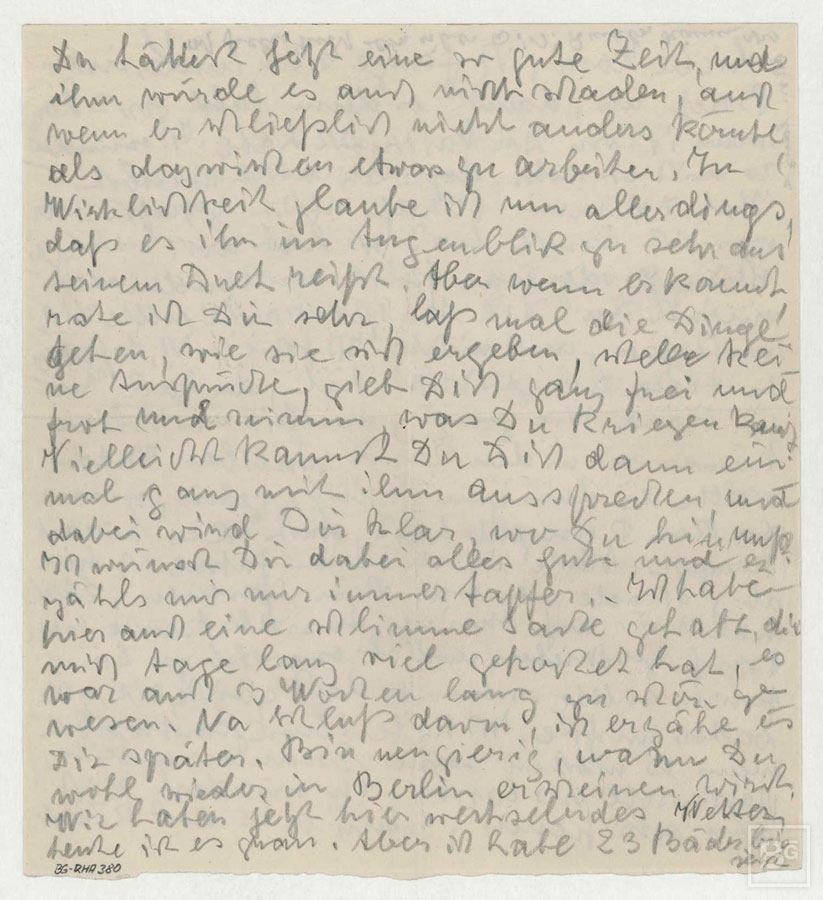 Du hättest jetzt eine so gute Zeit, und
ihm würde es auch nicht schaden, auch
wenn er schließlich nicht anders könnte
als dazwischen etwas zu arbeiten. In
Wirklichkeit glaube ich nun allerdings,
daß es ihn im Augenblick zu sehr aus
seinem Duett reißt. Aber wenn er kommt,
rate ich Dir sehr, laß mal die Dinge
gehen, wie sie sich ergeben, stelle kei-
ne Ansprüche, gieb Dich ganz frei und
froh und nimm, was Du kriegen kannst
Vielleicht kannst Du Dich dann ein-
mal ganz mit ihm aussprechen, und
dabei wird Dir klar, wo Du hin mußt.
Ich wünsch Dir dabei alles gute und er-
zähls mir nur immer tapfer. - Ich habe
hier auch eine schlimme Sache gehabt, die
mich tage lang viel gekostet hat, es
war auch 3 Wochen lang zu schön ge-
wesen. Na Schluß davon, ich erzähe es
Dir später. Bin neugierig, wann Du
wohl wieder in Berlin erscheinen wirst.
Wir haben jetzt hier wechselndes Wetter,
heute ist es grau. Aber ich habe 23 Bäder hin
BG-RHA 380
BG